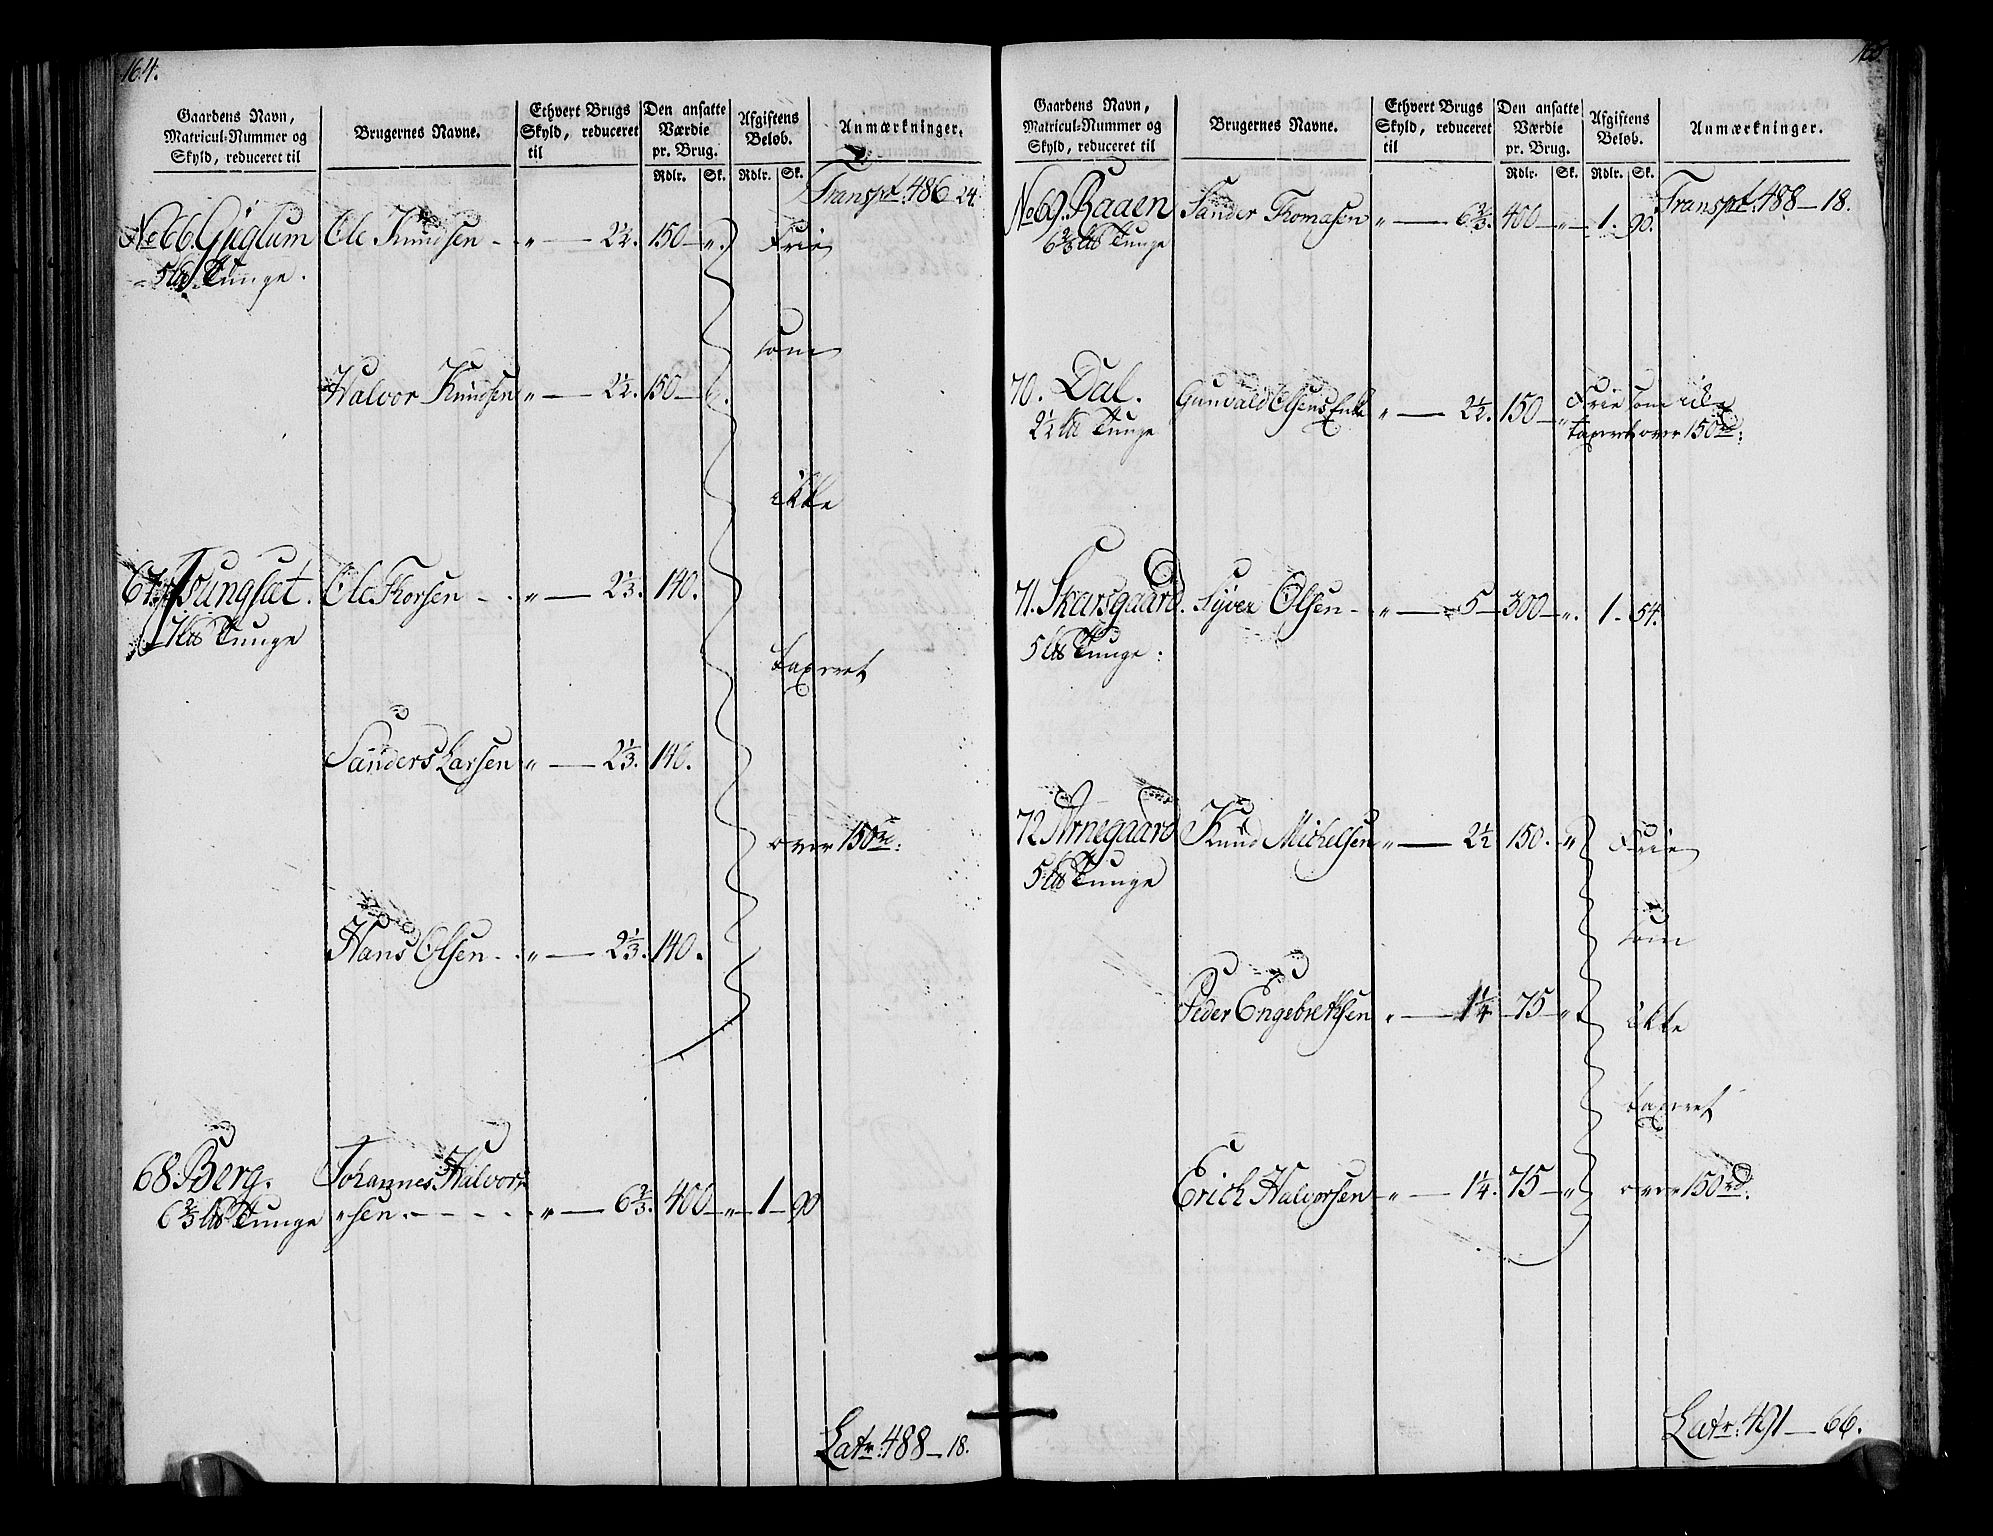 164.
Gaardens Navn, Matricul-Nummer og Skyld, reduceret til
Brugernes Navne.
Ethvert Brugs Skyld, reduceret til
Den ansatte Værdie pr. Brug.
Afgiftens Beløb.
Anmærkninger.
Rdlr. Sk. Rdlr. Sk.
Transpt. 486 24.
No 66. Gjiglum Ole Knudsen - . „ — 2½. 150 — „. Frie
5 lb Tunge.
som
Halvor Knudsen „ — 2½. 150 —
ikke
67. Ole Thorsen - . „ — 2⅓. 140.
7 lb Tunge
taxeret
Sanders Larsen „ — 2⅓. 140.
over 150 rd:
Hans Olsen - . „ — 2⅓. 140.
68. Berg. Johannes Halvor-
6⅔ lb Tunge „sen. - - - - - „ — 6⅔. 400 — „ — 1 — 90
Latr. 488 — 18.
165.
Gaardens Navn, Matricul-Nummer og Skyld, reduceret til
Brugernes Navne.
Ethvert Brugs Skyld, reduceret til
Den ansatte Værdie pr. Brug.
Afgiftens Beløb.
Anmærkninger.
Rdlr. Sk. Rdlr. Sk.
Transpt. 488 — 18.
No 69. Baaen Sander Thomasen „ — 6⅔. 400 — „ — 1. 90.
6⅔ lb Tunge
70. Dal. Gunvald Olsens Enke „ — 2½. 150 — „ Frie som ikke
2½ lb Tunge taxeret over 150 rd:
71. Skarsgaard. Syver Olsen - „ — 5 — 300 — „. 1 - 54.
5 lb Tunge:
72 Arnegaard Knud Michelsen „ — 2½ 150. „ Frie
5 lb Tunge
som
Peder Engebretsen „ — 1¼. 75 — „. ikke
taxeret
Erich Halvorsen „ — 1¼. 75 — „ over 150 rd.
Latr. 491 — 66.